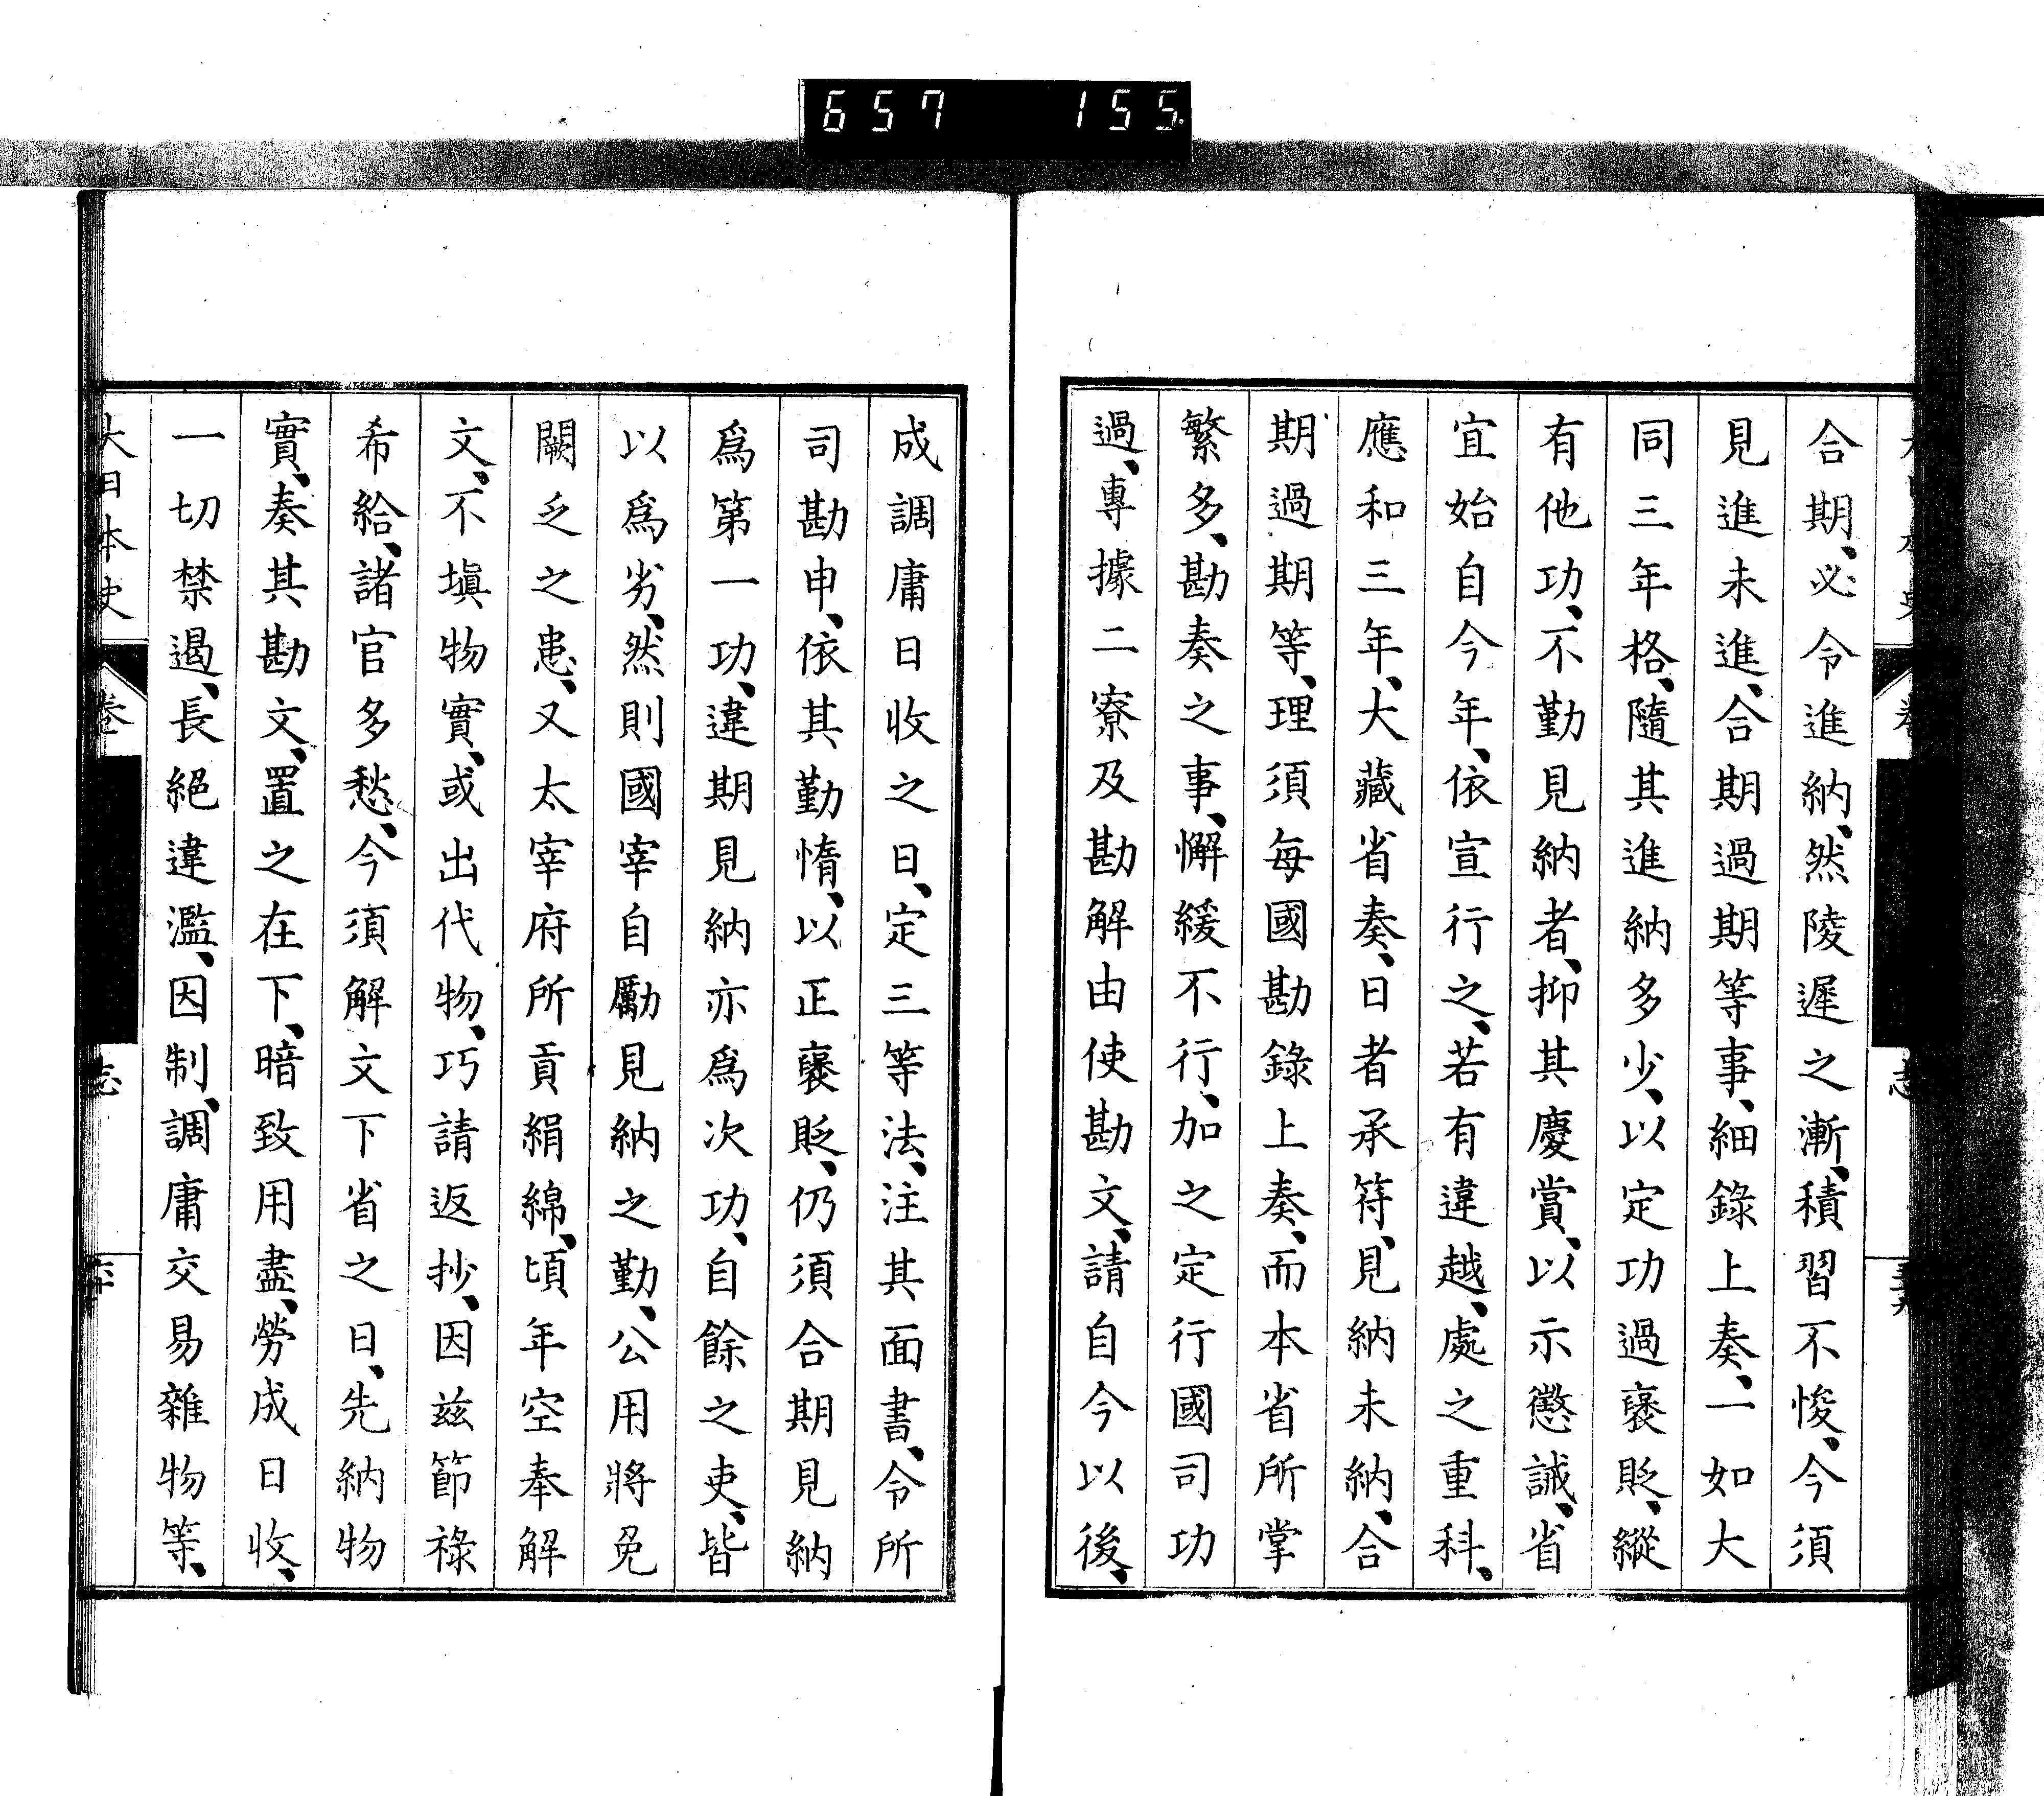 657 155
合期、必令進納、然陵遲之漸、積習不悛、今須
見進未進、合期過期等事、細錄上奏、一如大
同三年格、隨其進納多少、以定功過襃貶、縱
有他功、不勤見納者、抑其慶賞、以示懲誡、省
宜始自今年、依宣行之、若有違越、處之重科、
應和三年、大藏省奏、日者承符、見納未納、合
期過期等、理須每國勘錄上奏、而本省所掌
繁多、勘奏之事、懈緩不行、加之定行國司功
過、專據二寮及勘解由使勘文、請自今以後、
成調庸日收之日、定三等法、注其面書、令所
司勘申、依其勤惰、以正襃貶、仍須合期見納
爲第一功、違期見納亦爲次功、自餘之吏、皆
以爲劣、然則國宰自勵見納之勤、公用將免
闕乏之患、又太宰府所貢絹綿、頃年空奉解
文、不塡物實、或出代物、巧請返抄、因茲節祿
希給、諸官多愁、今須解文下省之日、先納物
實、奏其勘文、置之在下、暗致用盡、勞成日收、
一切禁遏、長絕違濫、因制、調庸交易雜物等、
大日本史 卷 志